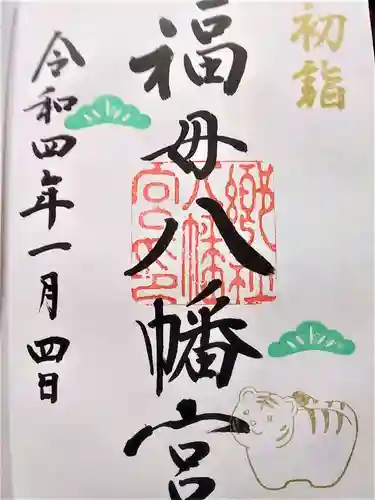 初詣
福母八幡宮
令和四年一月四日
郷社
八幡
宮印